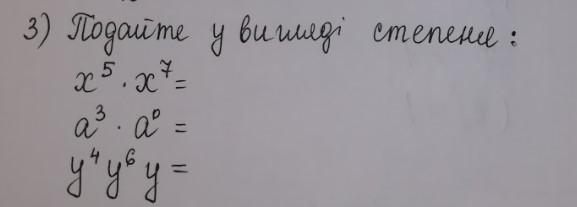 3) Подайте у вигляді степеня:
x⁵ · x⁷ =
a³ · a⁰ =
y⁴ y⁶ y =